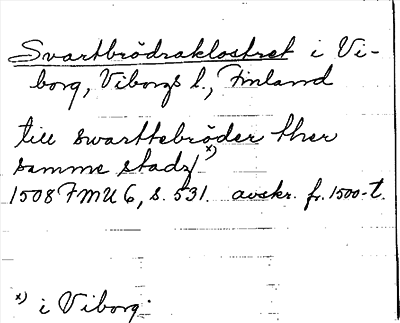 Svartbrödraklostret i Vi-
borg, Viborgs l., Finland
till swarttebröder ther
samme stadz x)
1508 FMU 6, s. 531. avskr. fr. 1500-t.
x) i Viborg.